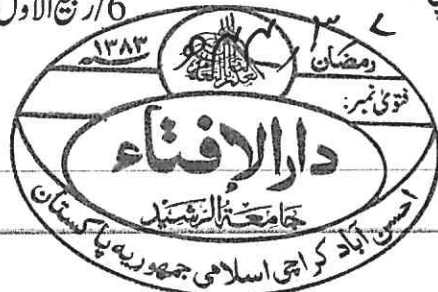 6/ربیع الاول
رمضان ۱۳۸۳
فتویٰ نمبر:
دار الافتاء
جامعة الرشید
احسن آباد کراچی اسلامی جمهوریه پاکستان